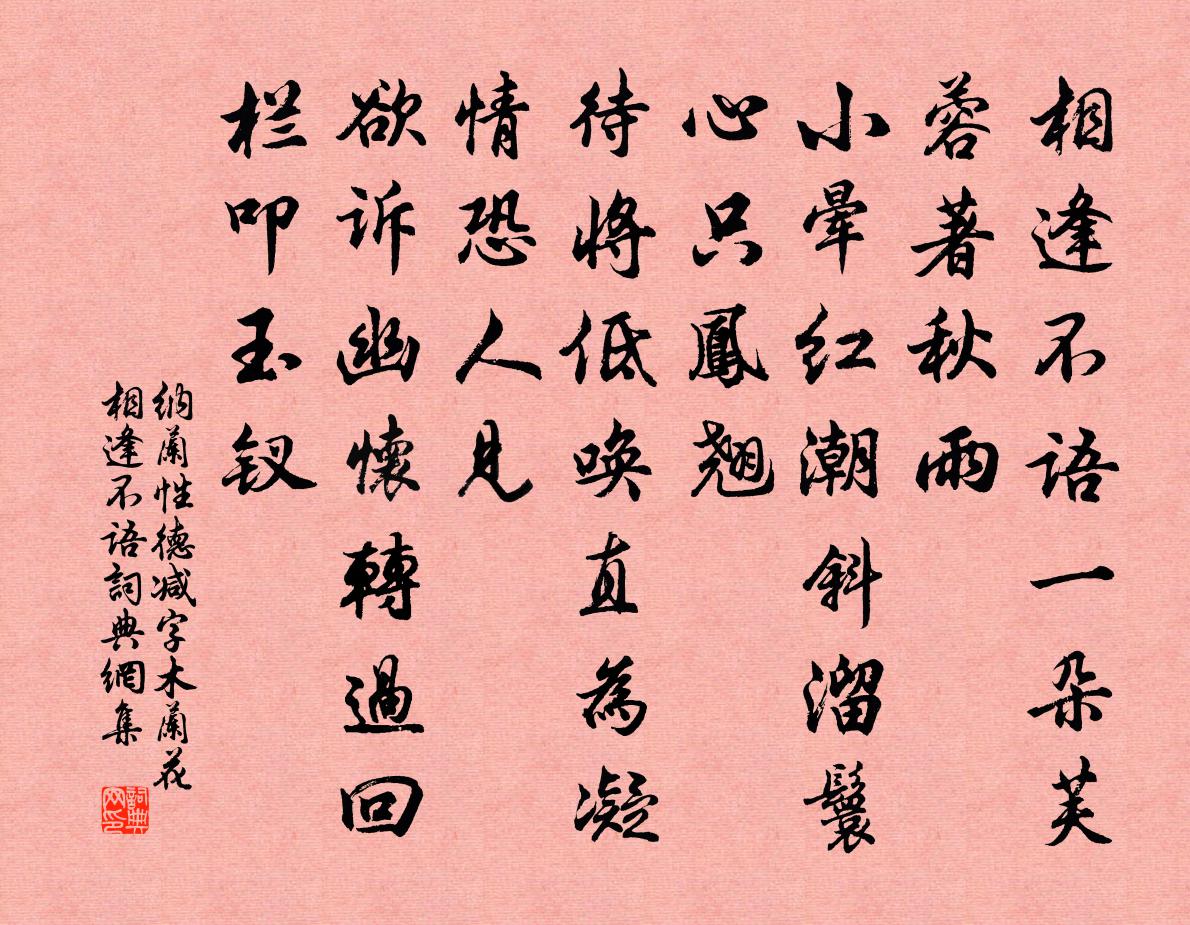 相逢不语一朵芙
蓉著秋雨
小晕红潮斜溜鬟
心只鳳翘
待将低唤直為凝
情恐人见
欲诉幽懷轉過回
栏叩玉钗
纳蘭性德减字木蘭花
相逢不语詞典網集
詞典网印